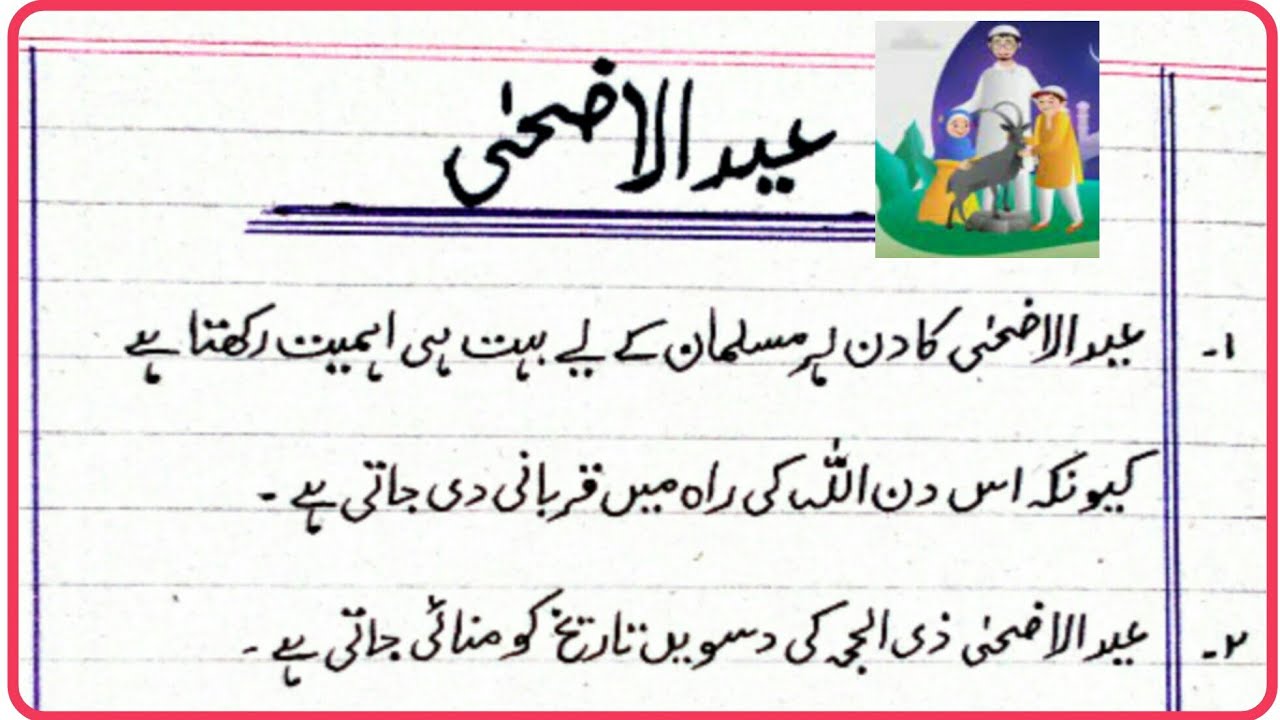 عید الاضحٰی
۱۔ عید الاضحٰی کا دن ہر مسلمان کے لیے بہت ہی اہمیت رکھتا ہے
کیونکہ اس دن اللہ کی راہ میں قربانی دی جاتی ہے۔
۲۔ عید الاضحٰی ذی الحجہ کی دسویں تاریخ کو منائی جاتی ہے۔